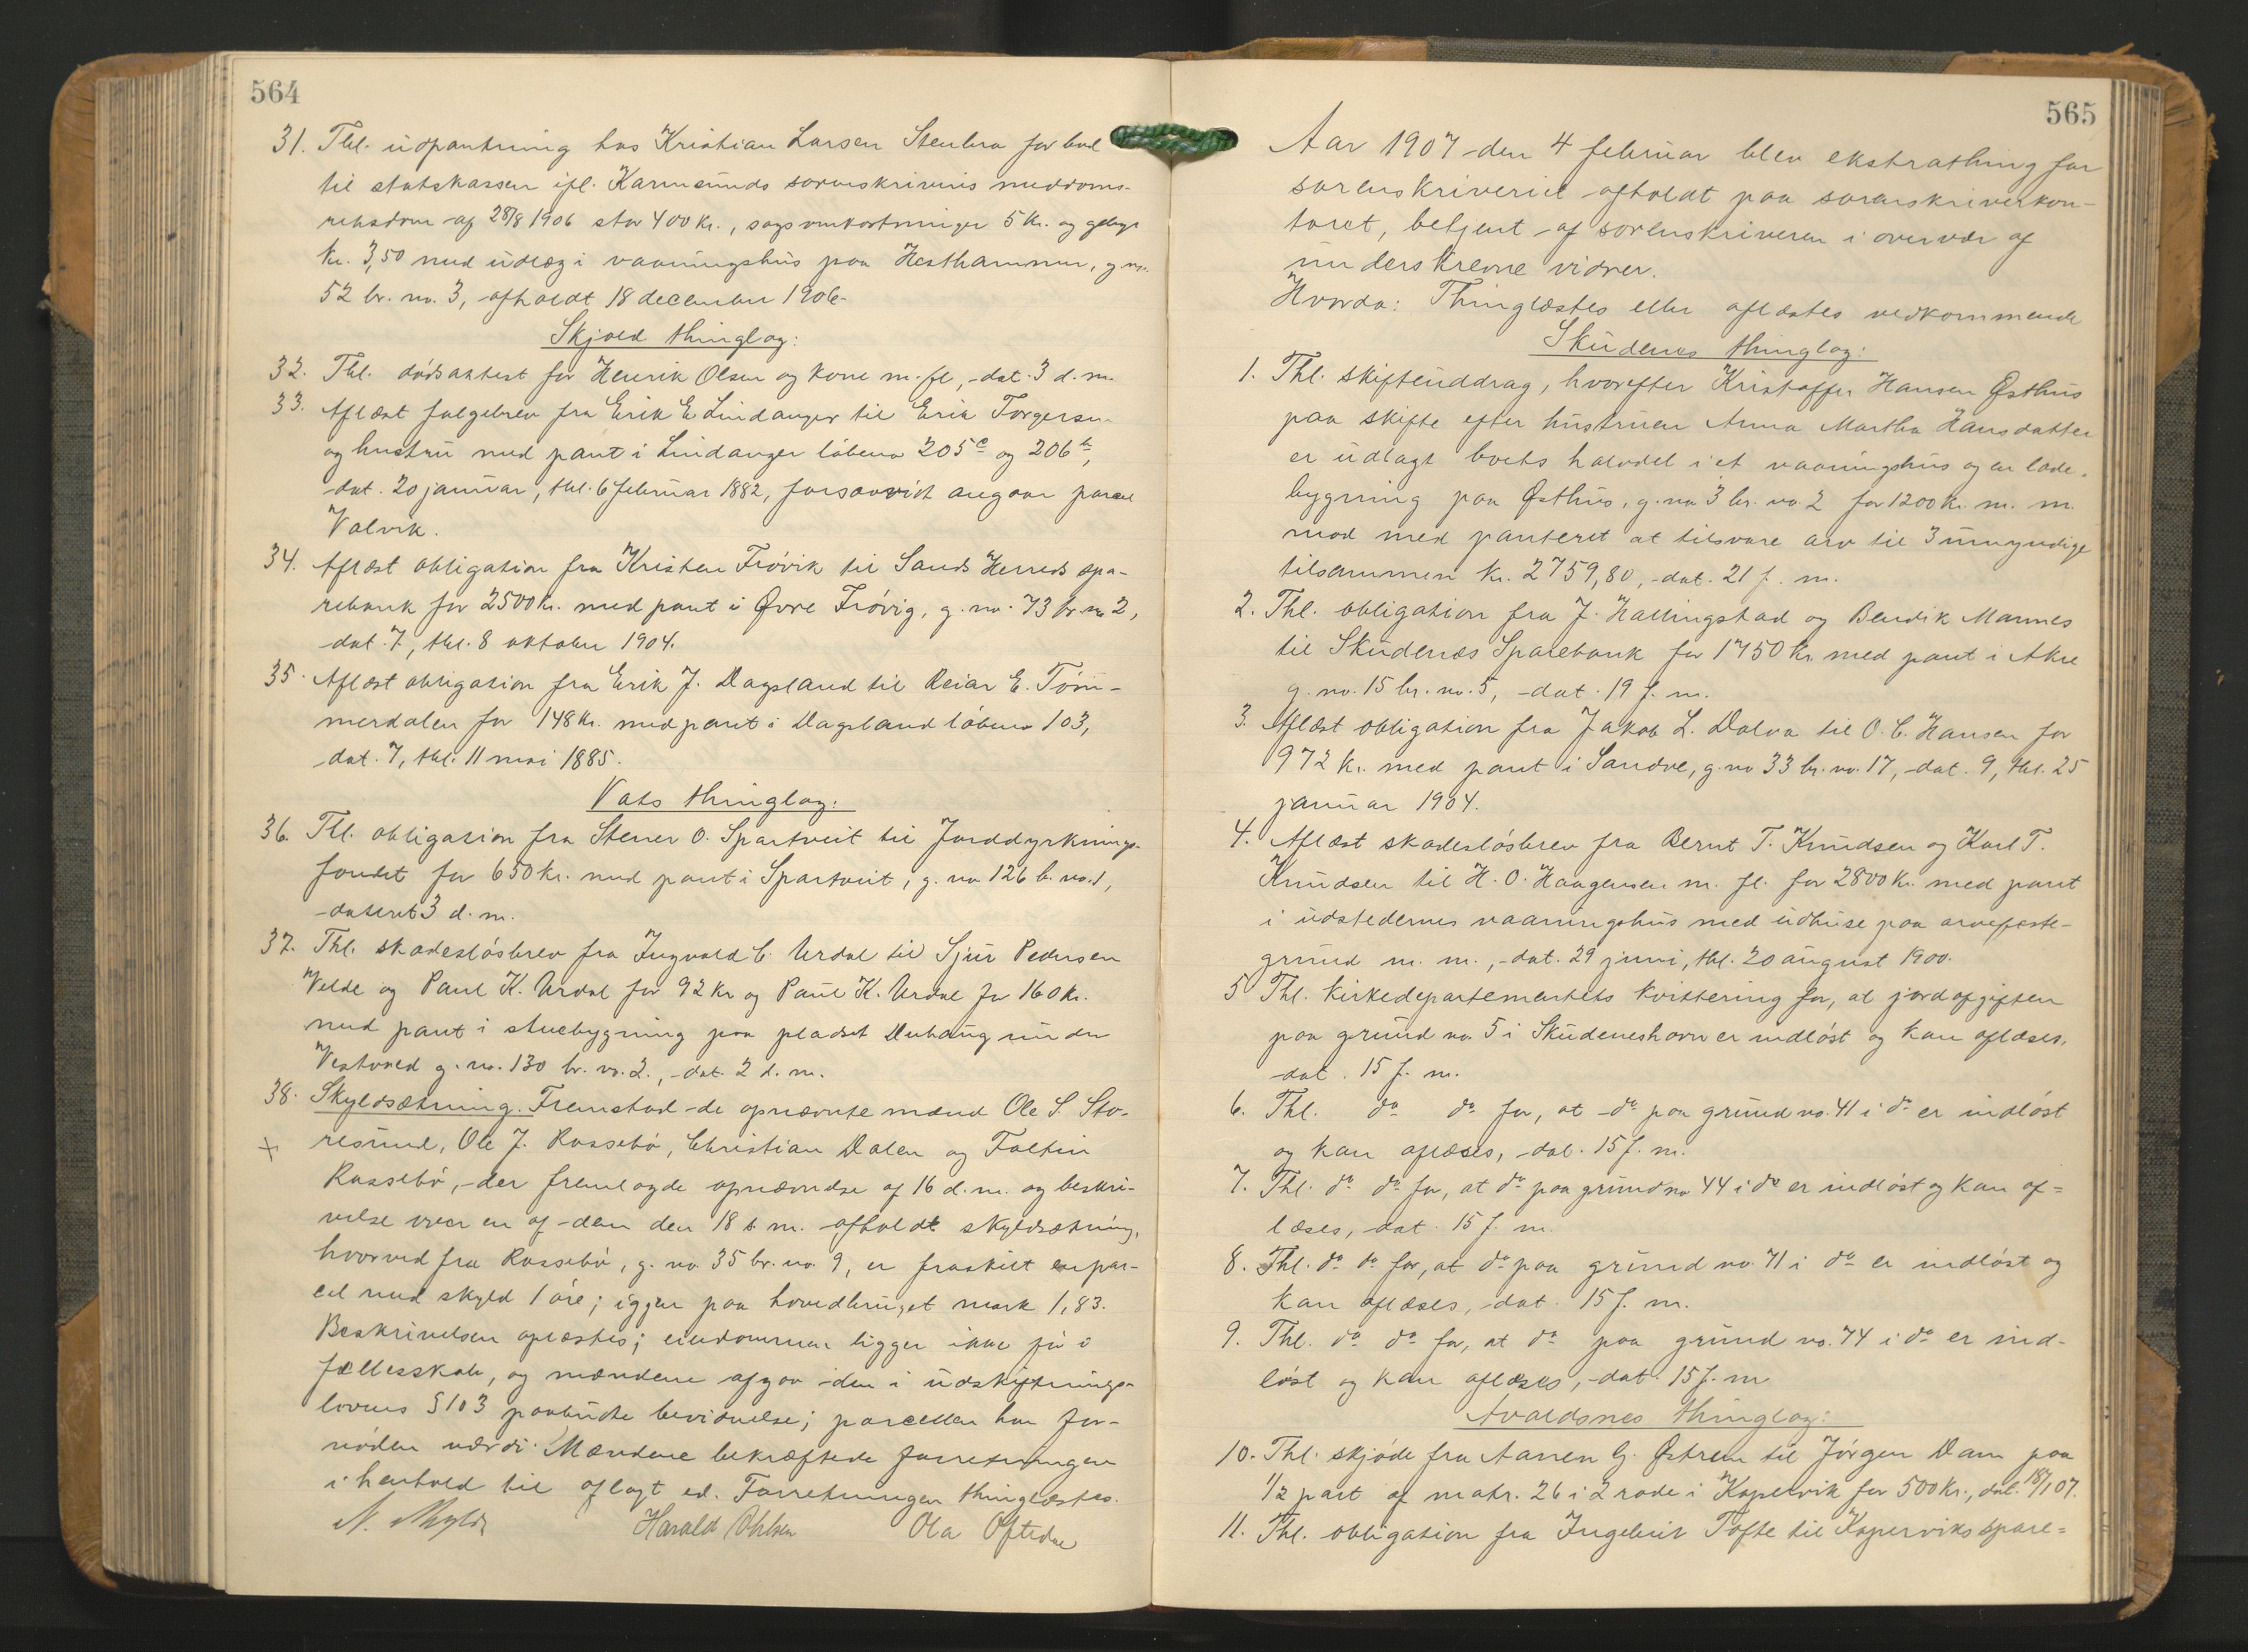 564
31. Thl. udpantning hos Kristian Larsen Stenbru for bod
til statskassen ifl. Karmsunds sorenskriveris meddoms-
retsdom af 28/8 1906 stor 400 kr., sagsomkostninger 5 kr. og gebyr
kr. 3,50 med udlæg i vaaningshus paa Hesthammer, g. no.
52 br. no. 3, afholdt 18 december 1906.
Skjold thinglag:
32. Thl. dødsattest for Henrik Olsen og kone m. fl., dat. 3 d. m.
33. Aflæst følgebrev fra Erik E. Lindanger til Erik Torgersen
og hustru med pant i Lindanger løbeno 205c og 206b,
dat. 20 januar, thl. 6 februar 1882, forsaavidt angaar parcel
Valvik.
34. Aflæst obligation fra Kristen Frøvik til Sands Herreds spa-
rebank for 2500 kr. med pant i Øvre Frøvig, g. no. 73 br. no 2,
dat. 7, thl. 8 oktober 1904.
35. Aflæst obligation fra Erik J. Dagsland til Reiar E. Tøm-
merdalen for 148 kr. med pant i Dagsland løbeno 103,
dat. 7, thl. 11 mai 1885.
Vats thinglag:
36. Thl. obligation fra Stener O. Spartveit til Jorddyrknings-
fondet for 650 kr. med pant i Spartveit, g. no 126 b. no. 1,
dateret 3 d. m.
37. Thl. skadesløsbrev fra Ingvald C. Urdal til Sjur Pedersen
Velde og Paul K. Urdal for 92 kr og Paul K. Urdal for 160 kr.
med pant i stuebygning paa pladset Duhaug under
g. no. 130 br. no. 2., dat. 2 d. m.
38. Skyldsætning. Fremstod de opnævnte mænd Ole S. Sto-
+ resund, Ole J. Rossebø, Christian Dalen og Faltin
Rossebø, der fremlagde opnævndse af 16 d. m. og beskri-
velse over en af dem den 18 s. m. afholdt skyldsætning,
hvorved fra Rossebø, g. no. 35 br. no. 9, er fraskilt en par-
cel med skyld 1 øre; igjen paa hovedbruget mark 1,83.
Beskrivelsen oplæstes; eiendommene ligger ikke i
fællesskab, og mændene afgav den i udskiftnings-
lovens § 103 paabudte bevidnelse; parcellen har for-
nøden værdi. Mændene bekræftede forretningen
i henhold til aflagt ed. Forretningen thinglæstes.
Harald Ohlsen Ola Oftedal
565
Aar 1907 den 4 februar blev ekstrathing for
sorenskriveriet afholdt paa sorenskriverkon-
toret, betjent af sorenskriveren i overvær af
underskrevne vidner.
Hvorda: Thinglæstes eller aflæstes vedkommende
Skudenes thinglag:
1. Thl. skifteuddrag, hvorefter Kristoffer Hansen Østhus
paa skifte efter hustruen Anna Martha Hansdatter
er udlagt boets halvdel i et vaaningshus og en lade-
bygning paa Østhus, g. no 3 br. no 2 for 1200 kr. m. m.
mod med panteret at tilsvare arv til 3 umyndige
tilsammen kr. 2759,80, dat. 21 f. m.
2. Thl. obligation fra J. Hallingstad og Bendik Mannes
til Skudenæs Sparebank for 1750 kr. med pant i Akre
g. no. 15 br. no. 5, dat. 19 f. m.
3. Aflæst obligation fra Jakob L. Dalva til O. C. Hansen for
972 kr. med pant i Sandve, g. no 33 br. no. 17, dat. 9, thl. 25
januar 1904.
4. Aflæst skadesløsbrev fra Bernt T. Knudsen og Karl T.
Knudsen til H. O. Haagensen m. fl. for 2800 kr. med pant
i udstedernes vaaningshus med udhuse paa arvefæste-
grund m. m., dat. 29 juni, thl. 20 august 1900.
5 Thl. kirkedepartementets kvittering for, at jordafgiften
paa grund no. 5 i Skudeneshavn er indløst og kan aflæses,
dat. 15 f. m.
6. Thl. do do for, at do paa grund no. 41 i do er indløst
og kan aflæses, dat. 15 f. m.
7. Thl. do do for, at do paa grund no 44 i do er indløst og kan af=
læses, dat. 15 f. m.
8. Thl. do do for, at do paa grund no. 71 i do er indløst og
kan aflæses, dat. 15 f. m.
9. Thl. do do for, at do paa grund no. 74 i do er ind-
løst og kan aflæses, dat. 15 f. m
Avaldsnes thinglag:
10. Thl. skjøde fra Aanen G. Østrem til Jørgen Dam paa
1/2 part af matr. 26 i 2 rode i Kopervik for 500 kr., dat. 18/1 07.
11. Thl. obligation fra Ingebrit Tofte til Koperviks spare=